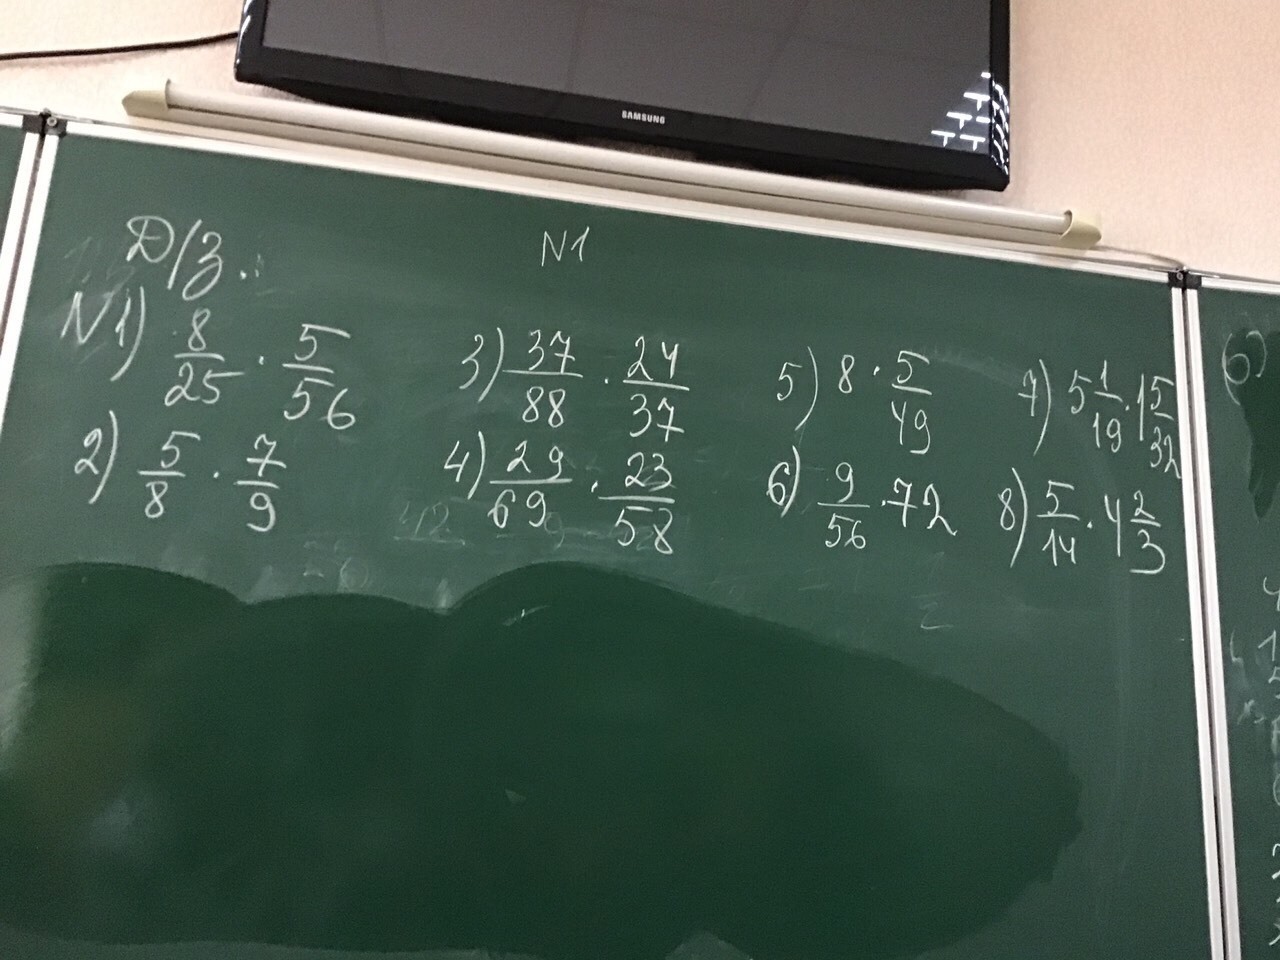 SAMSUNG
Д/З.
N1
N1) 8/25 · 5/56
3) 37/88 · 24/37
5) 8 · 5/49
7) 5 1/19 · 1 5/32
2) 5/8 · 7/9
4) 29/69 · 23/58
6) 9/56 · 72
8) 5/14 · 4 2/3
6)